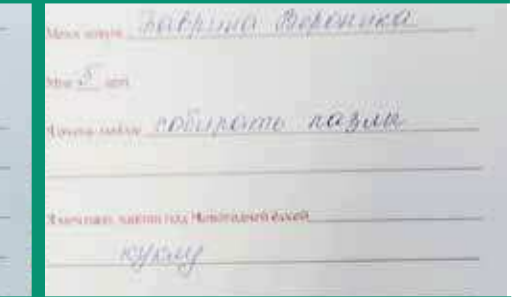 Меня зовут Гаврина Вероника
Мне 5 лет
Я очень люблю собирать пазлы
Я мечтаю найти под Новогодней ёлкой
куклу